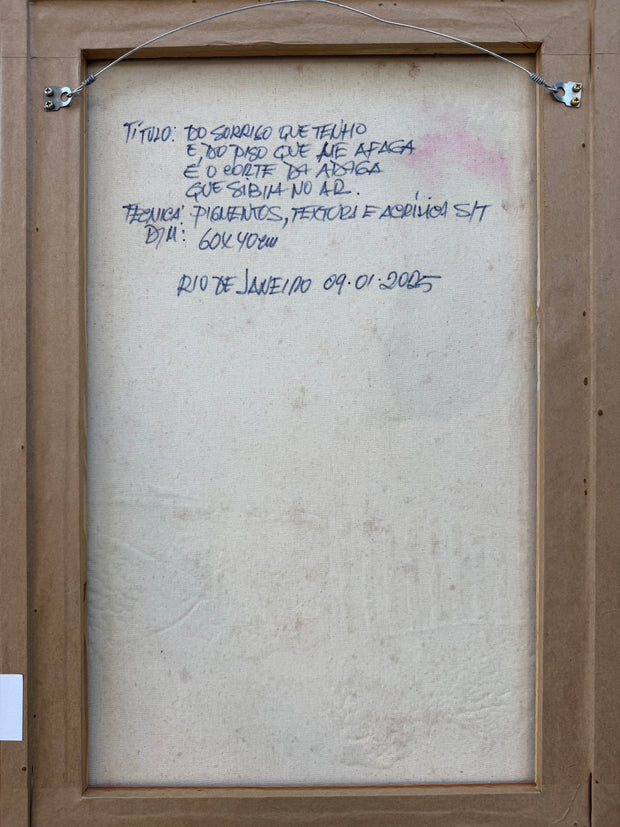 TÍTULO: DO SORRISO QUE TENHO
E, DO PISO QUE ME AFAGA
É O CORTE DA ADAGA
QUE SIBILA NO AR.
TÉCNICA: PIGMENTOS, TEXTURA E ACRÍLICA S/T
DIM: 60X40cm
RIO DE JANEIRO 09.01.2005